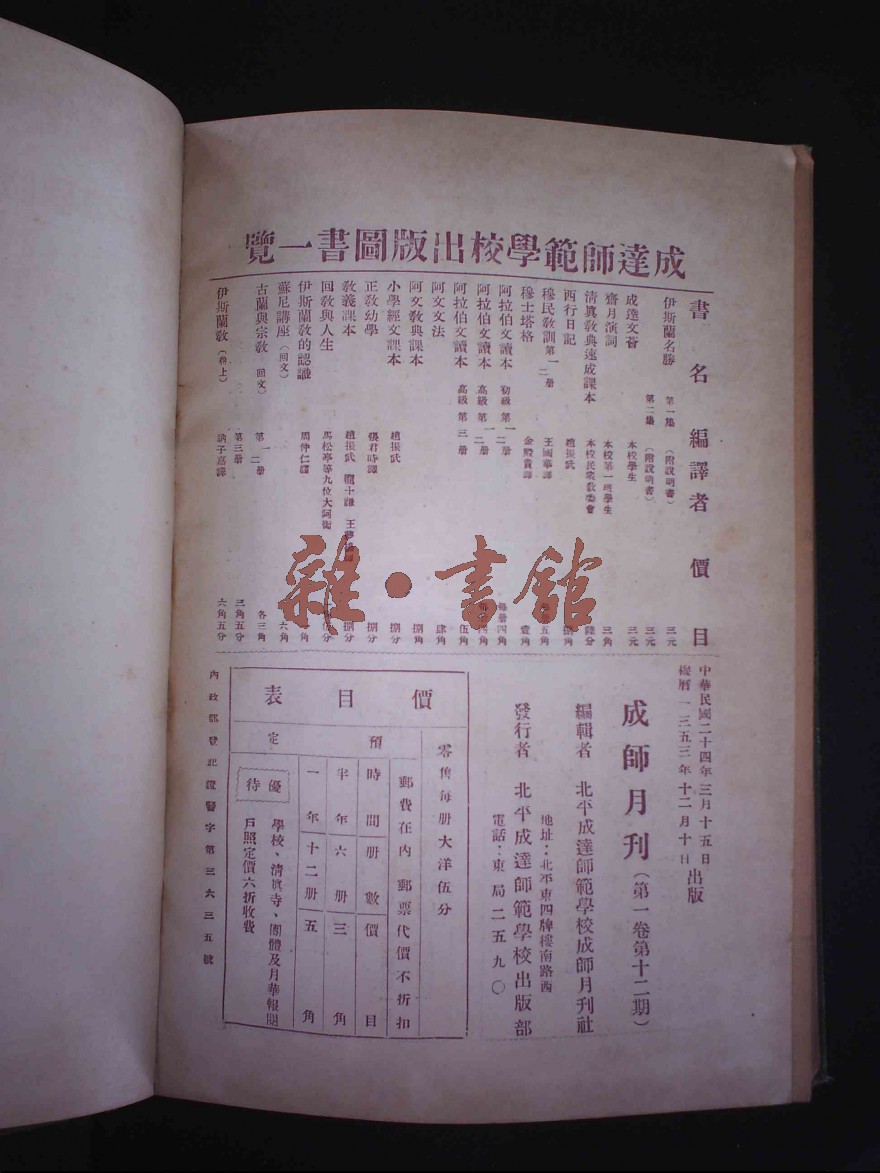 成達師範學校出版圖書一覽
書名 編譯者 價目
伊斯蘭名勝 第一集 (附說明書) 三元
第二集 (附說明書) 三元
成達文薈 本校學生 三元
齋月演詞 本校第一班學生 三角
清真教典速成課本 本校民眾教委會 陸分
西行日記 趙振武 捌角
穆民教訓 第一二册 王國華譯 五角
穆士塔格 金殿貴譯 壹角
阿拉伯文讀本 初級第一二册 每册四角
阿拉伯文讀本 高級第一二册 四角
阿拉伯文讀本 高級第三册 伍角
阿文文法 肆角
阿文教典課本 捌角
小學經文課本 趙振武 捌分
正教幼學 張君時譯 捌分
教義課本 趙振武 王夢揚 捌分
回教與人生 馬松亭等九位大阿衡 伍分
伊斯蘭教的認識 周仲仁譯 角
蘇尼講座(回文) 六角
古蘭與宗教(回文) 第一二册 各三角
第三册 三角五分
伊斯蘭教(卷上) 納子嘉譯 六角五分
中華民國二十四年三月十五日
穆曆一三五三年十二月十日 出版
成師月刊(第一卷第十二期)
編輯者 北平成達師範學校成師月刊社
地址:北平東四牌樓南路西
發行者 北平成達師範學校出版部
電話:東局二五九〇
價目表
零售每册大洋伍分
預定
郵費在內 郵票代價不折扣
時間 册數 價目
半年 六册 三角
一年 十二册 五角
優待
學校、清眞寺、團體及月華報閱
戶照定價六折收費
內政部登記證警字第三六三五號
雜·書館